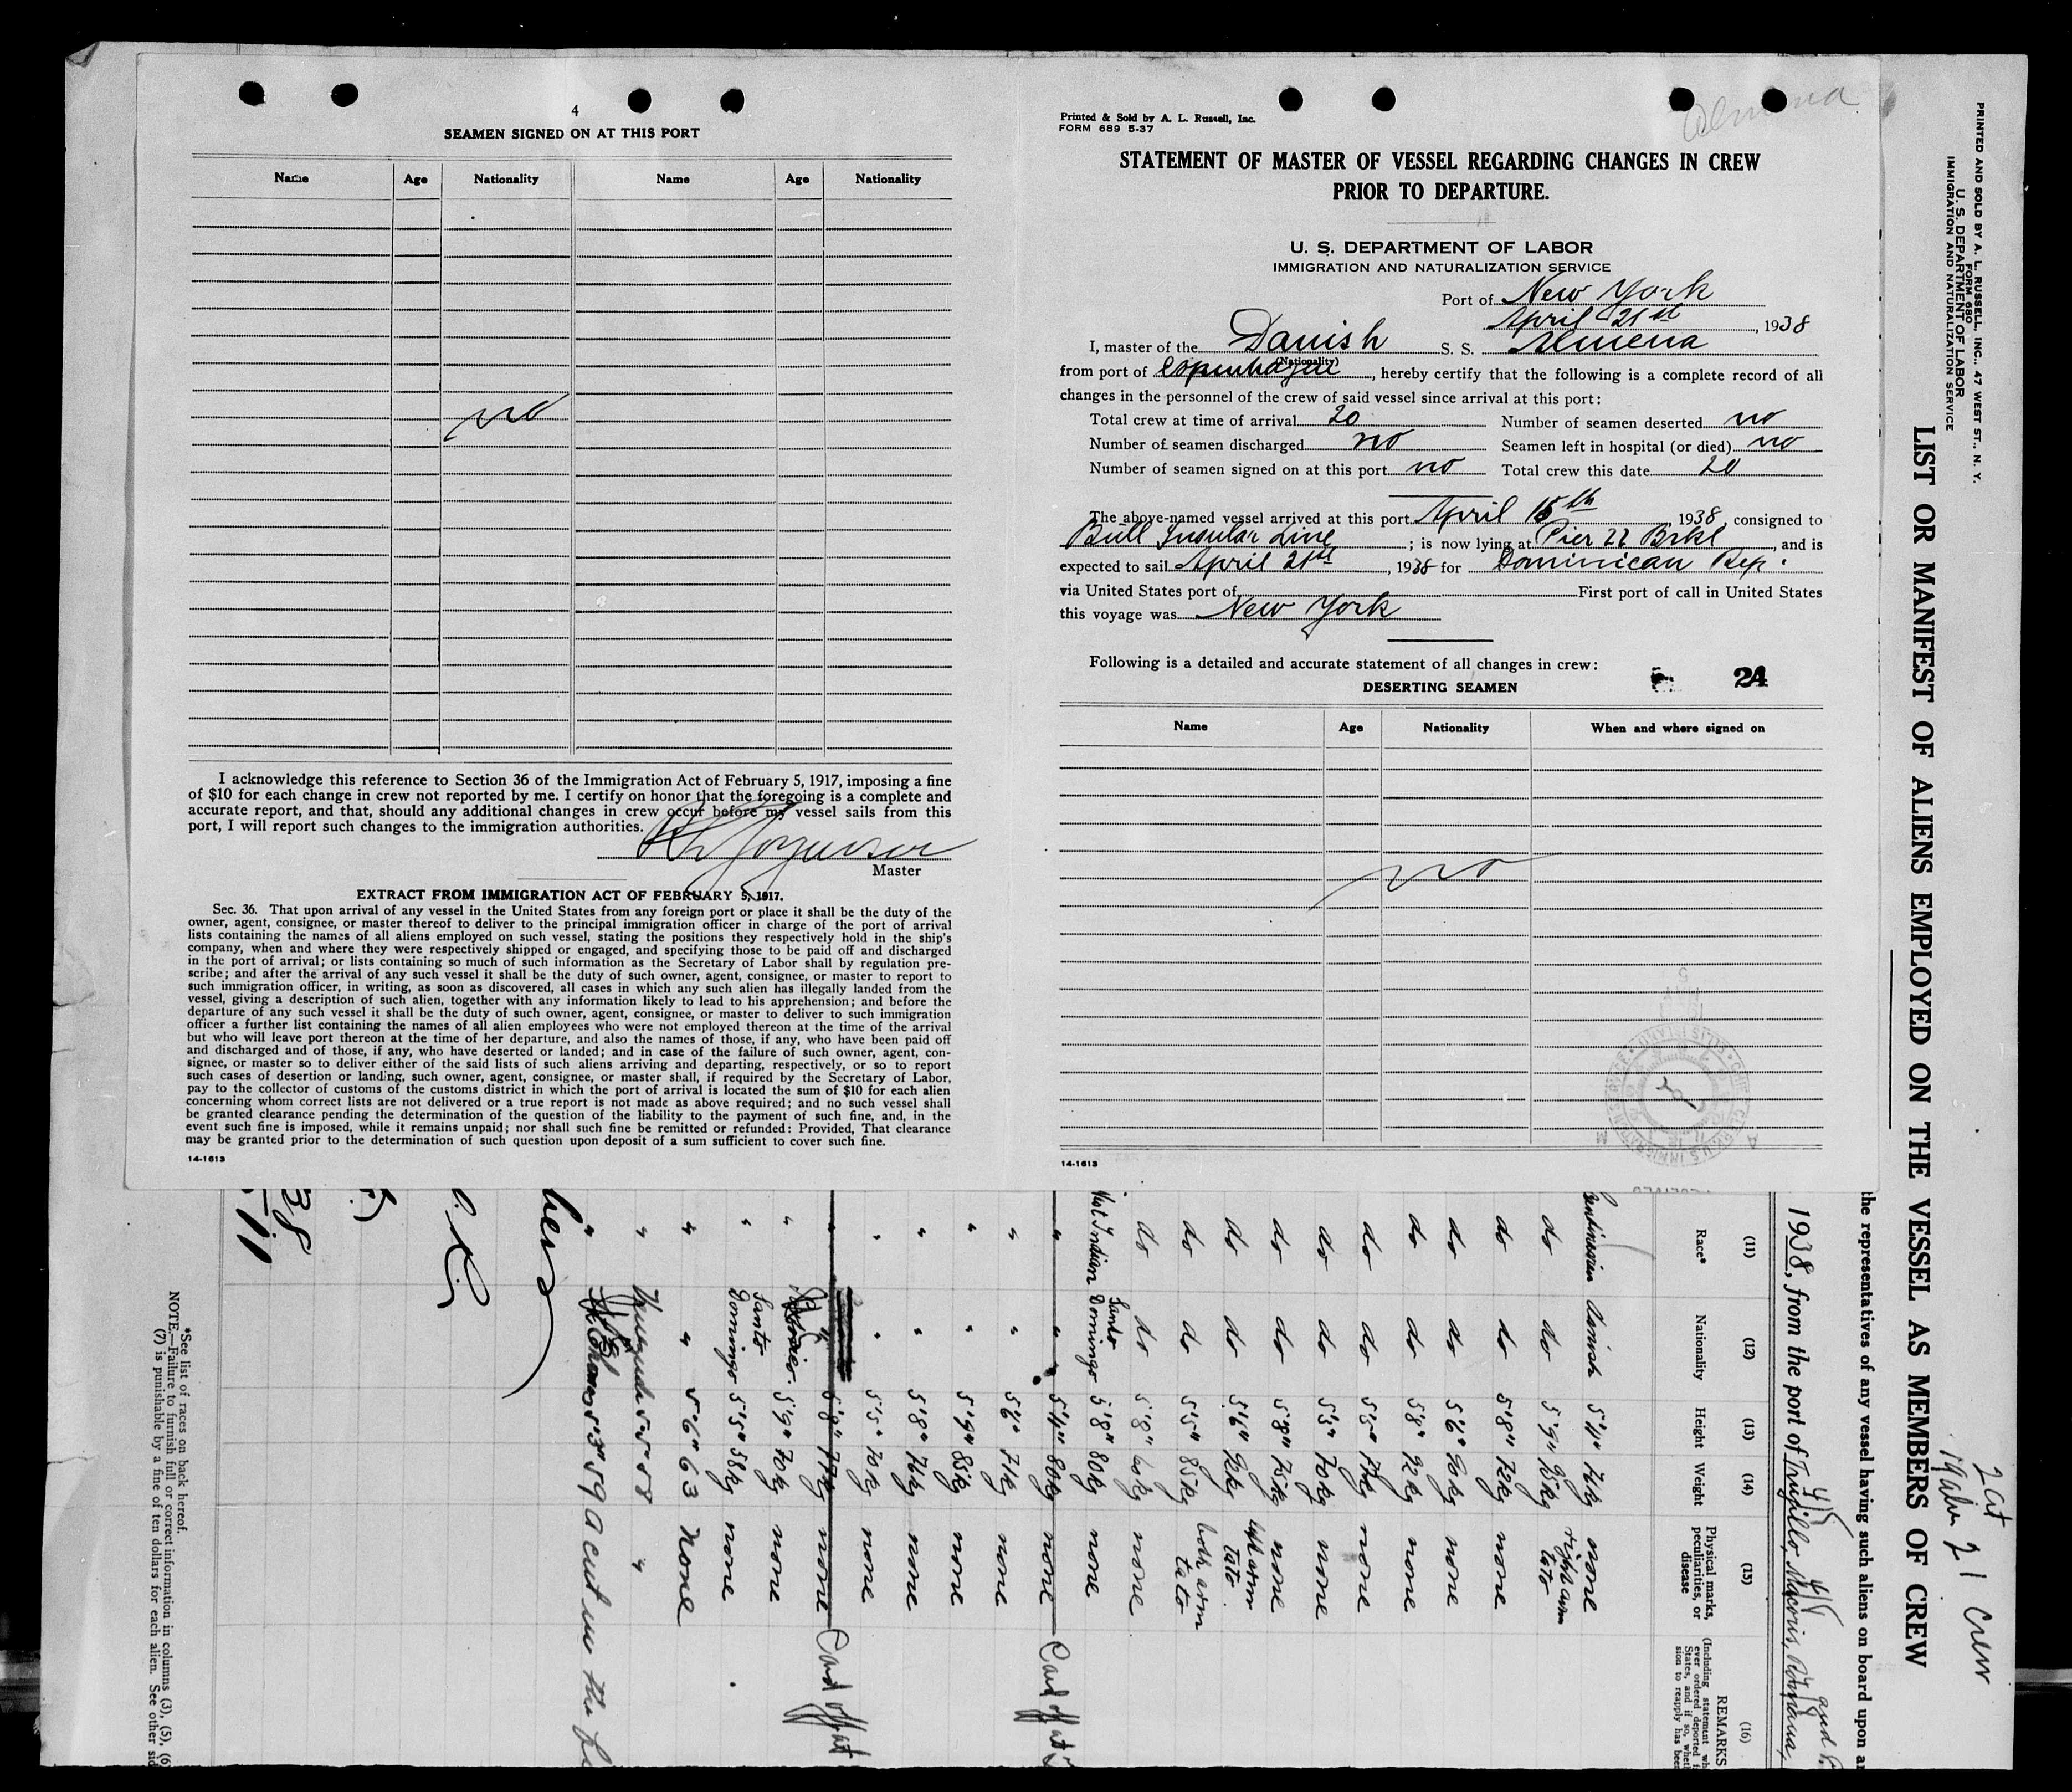 4
SEAMEN SIGNED ON AT THIS PORT
Name Age Nationality Name Age Nationality
no
I acknowledge this reference to Section 36 of the Immigration Act of February 5, 1917, imposing a fine
of $10 for each change in crew not reported by me. I certify on honor that the foregoing is a complete and
accurate report, and that, should any additional changes in crew occur before my vessel sails from this
port, I will report such changes to the immigration authorities.
Master
EXTRACT FROM IMMIGRATION ACT OF FEBRUARY 5, 1917.
Sec. 36. That upon arrival of any vessel in the United States from any foreign port or place it shall be the duty of the
owner, agent, consignee, or master thereof to deliver to the principal immigration officer in charge of the port of arrival
lists containing the names of all aliens employed on such vessel, stating the positions they respectively hold in the ship's
company, when and where they were respectively shipped or engaged, and specifying those to be paid off and discharged
in the port of arrival; or lists containing so much of such information as the Secretary of Labor shall by regulation pre-
scribe; and after the arrival of any such vessel it shall be the duty of such owner, agent, consignee, or master to report to
such immigration officer, in writing, as soon as discovered, all cases in which any such alien has illegally landed from the
vessel, giving a description of such alien, together with any information likely to lead to his apprehension; and before the
departure of any such vessel it shall be the duty of such owner, agent, consignee, or master to deliver to such immigration
officer a further list containing the names of all alien employees who were not employed thereon at the time of the arrival
but who will leave port thereon at the time of her departure, and also the names of those, if any, who have been paid off
and discharged and of those, if any, who have deserted or landed; and in case of the failure of such owner, agent, con-
signee, or master so to deliver either of the said lists of such aliens arriving and departing, respectively, or so to report
such cases of desertion or landing, such owner, agent, consignee, or master shall, if required by the Secretary of Labor,
pay to the collector of customs of the customs district in which the port of arrival is located the sum of $10 for each alien
concerning whom correct lists are not delivered or a true report is not made as above required; and no such vessel shall
be granted clearance pending the determination of the question of the liability to the payment of such fine, and, in the
event such fine is imposed, while it remains unpaid; nor shall such fine be remitted or refunded: Provided, That clearance
may be granted prior to the determination of such question upon deposit of a sum sufficient to cover such fine.
14-1613
Printed & Sold by A. L. Russell, Inc.
FORM 689 5-37
STATEMENT OF MASTER OF VESSEL REGARDING CHANGES IN CREW
PRIOR TO DEPARTURE.
U. S. DEPARTMENT OF LABOR
IMMIGRATION AND NATURALIZATION SERVICE
Port of New York
April 21st, 1938
I, master of the Danish S. S. Almena
(Nationality)
from port of Copenhagen, hereby certify that the following is a complete record of all
changes in the personnel of the crew of said vessel since arrival at this port:
Total crew at time of arrival 20 Number of seamen deserted no
Number of seamen discharged no Seamen left in hospital (or died) no
Number of seamen signed on at this port no Total crew this date 20
The above-named vessel arrived at this port April 15th, 1938, consigned to
Bull Insular Line; is now lying at Pier 22 Brkl, and is
expected to sail April 21st, 1938 for Dominican Rep.
via United States port of First port of call in United States
this voyage was New York
Following is a detailed and accurate statement of all changes in crew:
24
DESERTING SEAMEN
Name Age Nationality When and where signed on
no
14-1613
PRINTED AND SOLD BY A. L. RUSSELL, INC., 47 WEST ST., N. Y.
FORM 680
U. S. DEPARTMENT OF LABOR
IMMIGRATION AND NATURALIZATION SERVICE
LIST OR MANIFEST OF ALIENS EMPLOYED ON THE VESSEL AS MEMBERS OF CREW
21 Crew
the representatives of any vessel having such aliens on board upon
1938, from the port of Trujillo, Macoris, Romana,
(11) (12) (13) (14) (15) (16)
Race* Nationality Height Weight Physical marks, peculiarities, or disease REMARKS
Danish 5'11" 76kg none
do do 5'9" 95kg right arm tato
do do 5'8" 72kg none
do do 5'6" 90kg none
do do 5'8" 92kg none
do do none
do do 5'3" 70kg none
do do 5'8" 75kg none
do do 5'6" 92kg left arm tato
do do 5'5" 85kg both arm tato
do do 5'8" 60kg none
West Indian Santo Domingo 5'8" 80kg none
" " 5'11" 80kg none
" " 5'6" 71kg none
" " 5'9" 85kg none
" " 5'8" 76kg none
" " 5'5" 70kg none
" " 5'8" 77kg none
" 5'9" 70kg none
" Santo Domingo 5'5" 58kg none
" " 5'6" 63 None
*See list of races on back hereof.
NOTE.—Failure to furnish full or correct information in columns (3), (5), (6)
(7) is punishable by a fine of ten dollars for each alien. See other